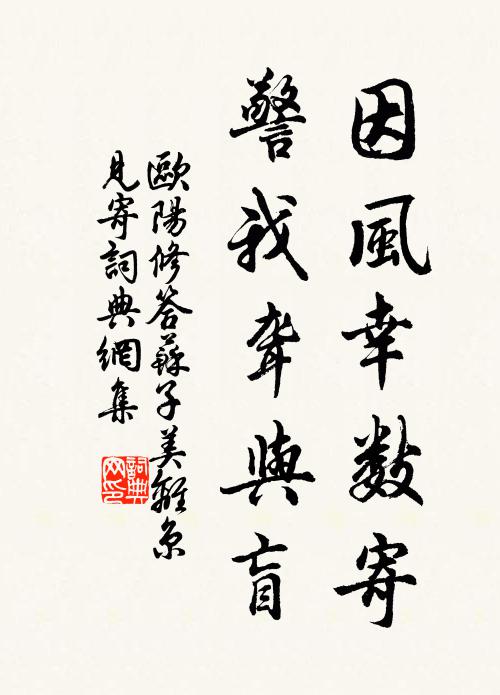 因風幸數寄
警我聾與盲
歐陽修答蘇子美離京
見寄詞典網集
詞典网印